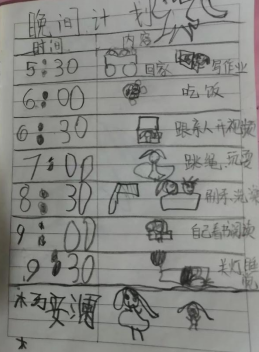 晚间计划
时间 内容
5:30 回家 写作业
6:00 吃饭
6:30 跟家人开视频
7:00 跳绳,玩耍
8:30 刷牙,洗
9:00 自己看书阅读
9:30 关灯睡
安澜